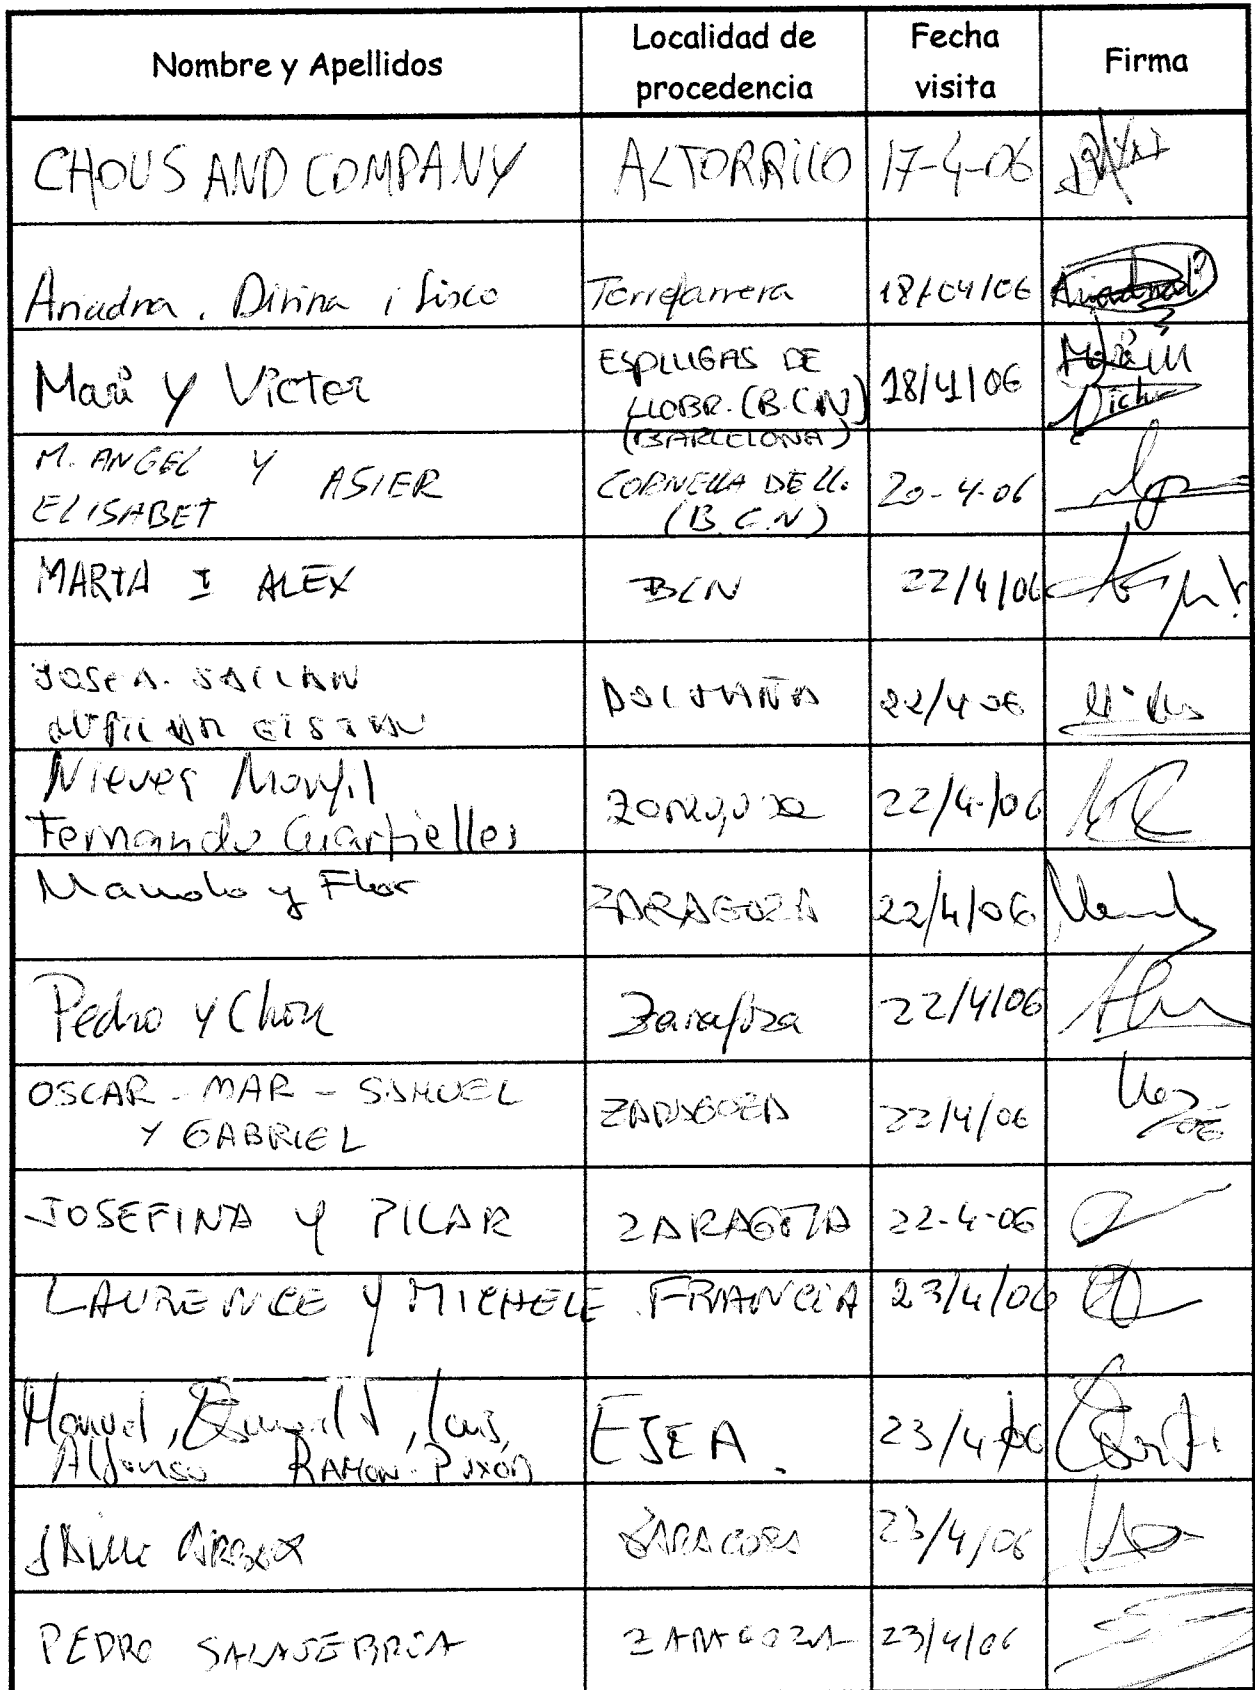 Nombre y Apellidos
Localidad de
procedencia
Fecha
visita
Firma
CHOUS AND COMPANY
ALTORRICO
17-4-06
Ariadna, Divina i Sisco
Torrefarrera
18/04/06
Ariadna
Mari y Victor
ESPLUGAS DE
LLOBR. (B.C.N)
(BARCELONA)
18/4/06
M. ANGEL Y ASIER
ELISABET
CORNELLA DE LL.
(B.C.N)
20-4-06
MARTA I ALEX
BCN
22/4/06
JOSE A.
22/4 06
Nieves Monfil
Fernando Cuartielles
Zaragoza
22/4/06
Manolo y Flor
ZARAGOZA
22/4/06
Pedro y
Zaragoza
22/4/06
OSCAR - MAR - SAMUEL
Y GABRIEL
ZARAGOZA
22/4/06
JOSEFINA Y PILAR
ZARAGOZA
22-4-06
LAURENCE Y MICHELE
FRANCIA
23/4/06
Manuel, Luis,
Alfonso RAMON
EJEA.
23/4/06
ZARAGOZA
23/4/06
PEDRO
ZARAGOZA
23/4/06